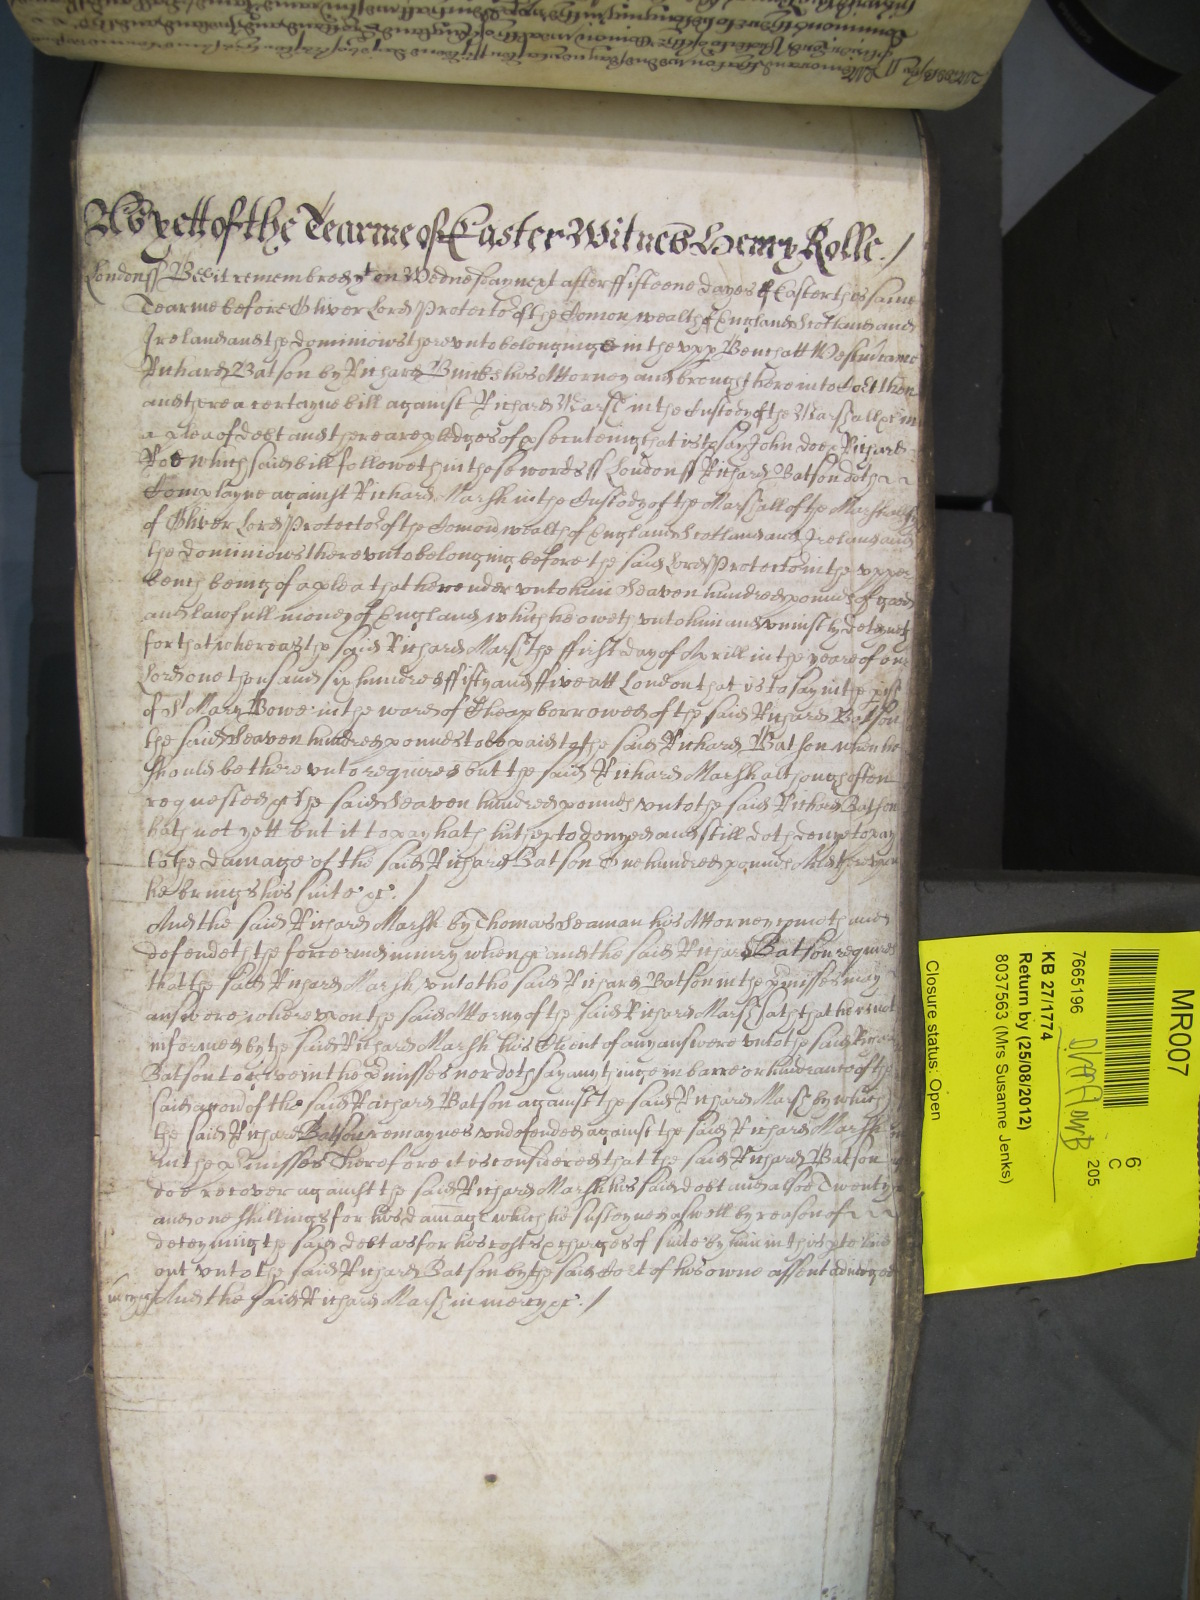 As yett of the Tearme of Easter Witnes Henry Rolle./
London ss Bee it remembred yt on Wednesday next after fifteene dayes of Easter this same
Tearme before Oliver Lord Protector of the Comonwealth of England Scotland and
Ireland and the dominions thereunto belonginge in the upp Bench att Westm came
Richard Batson by Richard Bincks his Attorney and brought here into Cort then
and there a certayne bill against Richard Marsh in the Custody of the Marshall &c in
a plea of debt and there are pledges of psecuteing that is to say John doe & Richard
Roe which said bill followeth in those words ss London ss Richard Batson doth
Complayne against Richard Marsh in the Custody of the Marshall of the Marshalsey
of Oliver Lord Protector of the Comonwealth of England Scotland and Ireland and
the dominions thereunto belonging before the said Lord Protector in the upper
bench being of a plea that he render unto him Seaven hundred pounds of good
and lawfull money of England which he oweth unto him and uniustly deteyneth
for that whereas the said Richard Marsh the ffirst day of Aprill in the yeare of our
Lord one thousand six hundred ffifty and ffive att London that is to say in the pish
of St Mary Bowe in the ward of Cheap borrowed of the said Richard Batson
the said Seaven hundred pounds to be paid to the said Richard Batson when he
should be thereunto required but the said Richard Marsh although often
requested &c the said Seaven hundred pounds unto the said Richard Batson
hath not yett but it to pay hath hitherto denyed and still doth deny to pay
to the damage of the said Richard Batson One hundred pounds And thereupon
he brings his suite &c./
And the said Richard Marsh by Thomas Seaman his Attorney cometh and
defendeth the force and iniury when &c and the said Richard Batson requires
that the said Richard Marsh unto the said Richard Batson in the pmisses may
answere whereupon the said Attorny of the said Richard Marsh saith that he is not
informed by the said Richard Marsh his Client of any answere unto the said Richard
Batson to give in the pmisses nor doth say any thinge in barre or hindrance of the
said accon of the said Richard Batson against the said Richard Marsh by which
the said Richard Batson remaynes undefended against the said Richard Marsh
in the pmisses Therefore it is considered that the said Richard Batson
doe recover against the said Richard Marsh his said debt and alsoe Twenty
and one shillings for his damage which he susteyned aswell by reason of
deteyning the said debt as for his costs & charges of suite by him in this pte laid
out unto the said Richard Batson by the said Cort of his owne assent adiudged
mercy And the said Richard Marsh in mercy &c./
MR007
7665196
6
C
205
KB 27/1774
Return by (25/08/2012)
8037563 (Mrs Susanne Jenks)
Closure status: Open